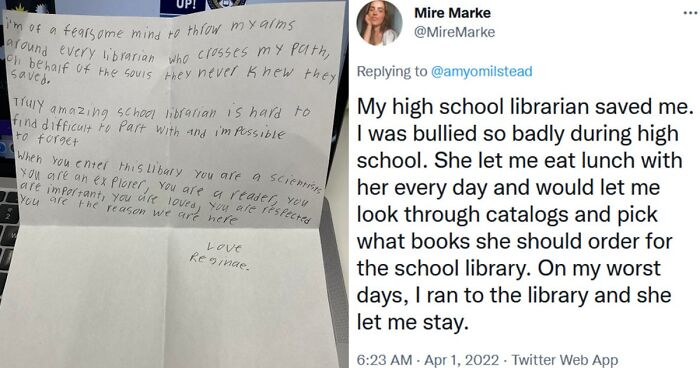 UP!
i'm of a fearsome mind to throw my arms
around every librarian who crosses my path,
on behalf of the souls they never knew they
saved.
Truly amazing school librarian is hard to
find difficult to Part with and impossible
to forget
When you enter this Libary you are a scientists
you are an explorer, you are a reader, you
are important, you are loved, you are respected
you are the reason we are here
Love
Reginae.
Mire Marke
@MireMarke
Replying to @amyomilstead
My high school librarian saved me.
I was bullied so badly during high
school. She let me eat lunch with
her every day and would let me
look through catalogs and pick
what books she should order for
the school library. On my worst
days, I ran to the library and she
let me stay.
6:23 AM · Apr 1, 2022 · Twitter Web App